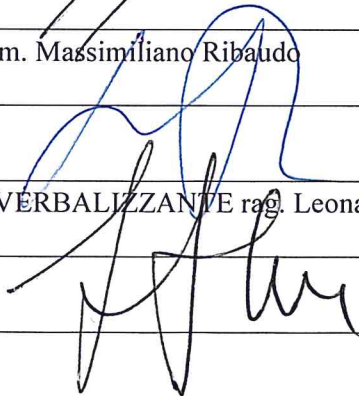 m. Massimiliano Ribaudo
VERBALIZZANTE rag. Leona